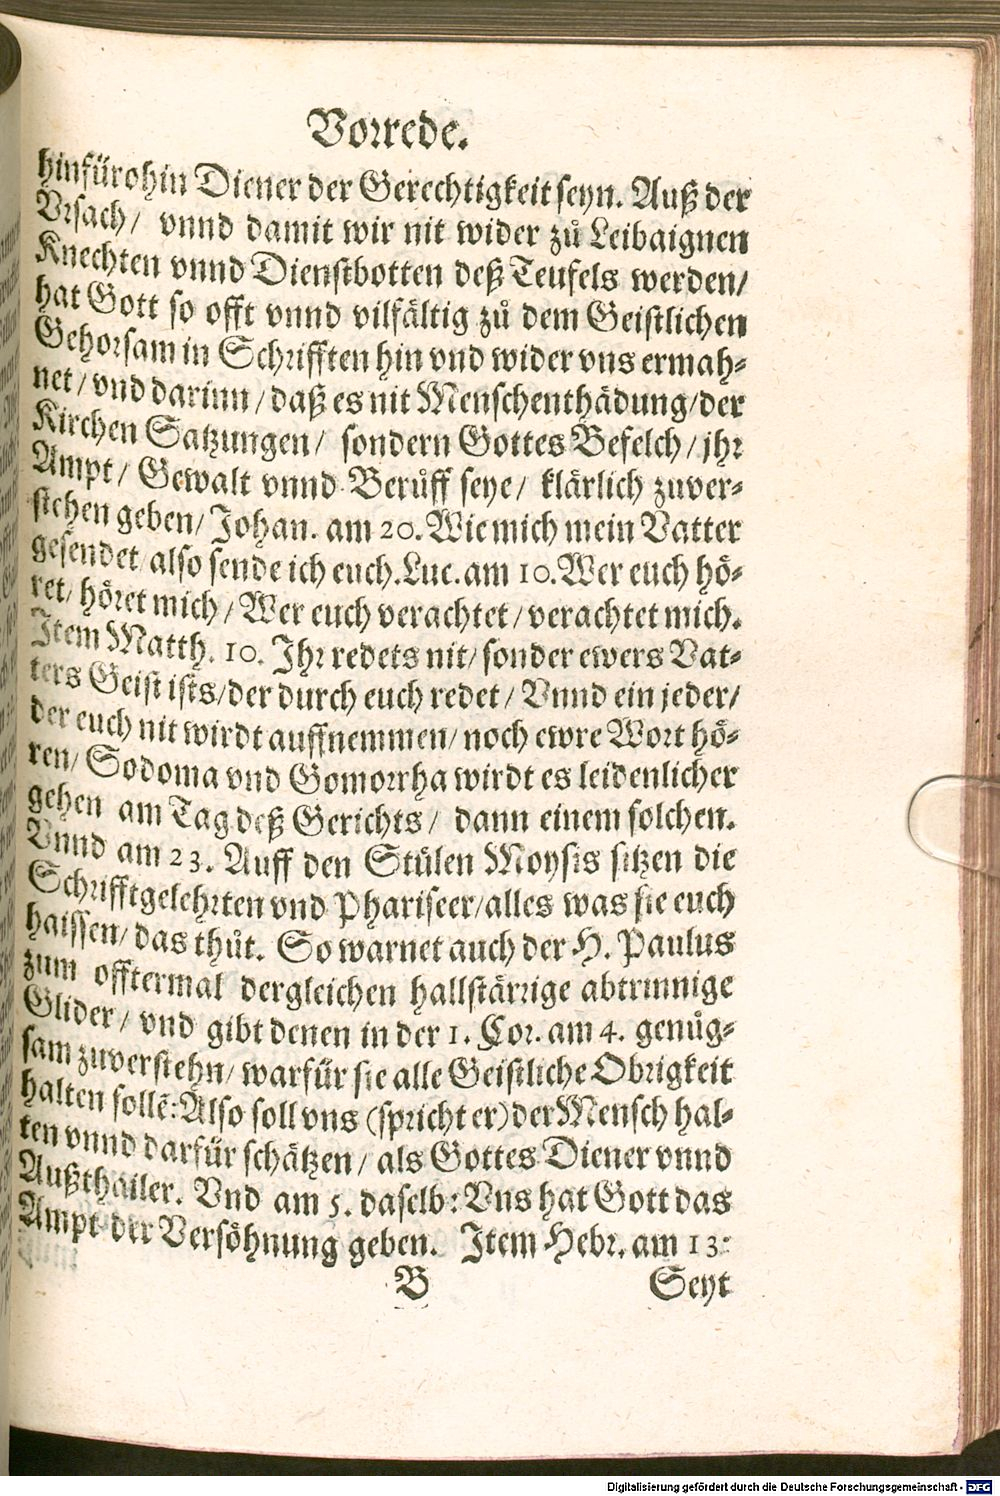 Vorrede.
hinfürohin Diener der Gerechtigkeit seyn. Auß der
Vrsach/ vnnd damit wir nit wider zů Leibaignen
Knechten vnnd Dienstbotten deß Teufels werden/
hat Gott so offt vnnd vilfältig zů dem Geistlichen
Gehorsam in Schrifften hin vnd wider vns ermah-
net/ vnd darinn/ daß es nit Menschenthädung/ der
Kirchen Satzungen/ sondern Gottes Befelch/ jhr
Ampt/ Gewalt vnnd Berůff seye/ klärlich zuver-
stehen geben/ Johan. am 20. Wie mich mein Vatter
gesendet/ also sende ich euch. Luc. am 10. Wer euch hö-
ret/ höret mich/ Wer euch verachtet/ verachtet mich.
Item Matth. 10. Ihr redets nit/ sonder ewers Vat-
ters Geist ists/ der durch euch redet/ Vnnd ein jeder/
der euch nit wirdt auffnemmen/ noch ewre Wort hö-
ren/ Sodoma vnd Gomorrha wirdt es leidenlicher
gehen am Tag deß Gerichts/ dann einem solchen.
Vnnd am 23. Auff den Stůlen Moysis sitzen die
Schrifftgelehrten vnd Phariseer/ alles was sie euch
haissen/ das thůt. So warnet auch der H. Paulus
zum offtermal dergleichen hallstärrige abtrinnige
Glider/ vnd gibt denen in der 1. Cor. am 4. genůg-
sam zuverstehn/ warfür sie alle Geistliche Obrigkeit
halten sollẽ: Also soll vns (spricht er) der Mensch hal-
ten vnnd darfür schätzen/ als Gottes Diener vnnd
Außthailer. Vnd am 5. daselb: Vns hat Gott das
Ampt der Versöhnung geben. Item Hebr. am 13:
B Seyt
Digitalisierung gefördert durch die Deutsche Forschungsgemeinschaft - DFG